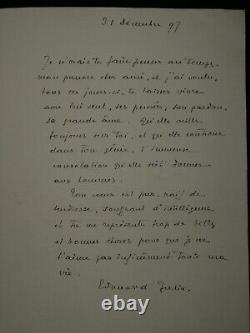 31 décembre 97
Je n'osais te faire penser au temps,
mon pauvre cher ami, et j'ai voulu,
tous ces jours-ci, te laisser vivre
avec lui seul, ses pensées, son pardon,
sa grande âme. Qu'elle veille
toujours sur toi, et qu'elle continue
dans ton génie, l'immense
consolation qu'elle sut donner
aux hommes.
Ton cœur est pur, naïf de
tendresse, souffrant d'intelligence
et tu me représentes trop de belles
et bonnes choses pour que je ne
t'aime pas infiniment toute ma
vie.
Edouard